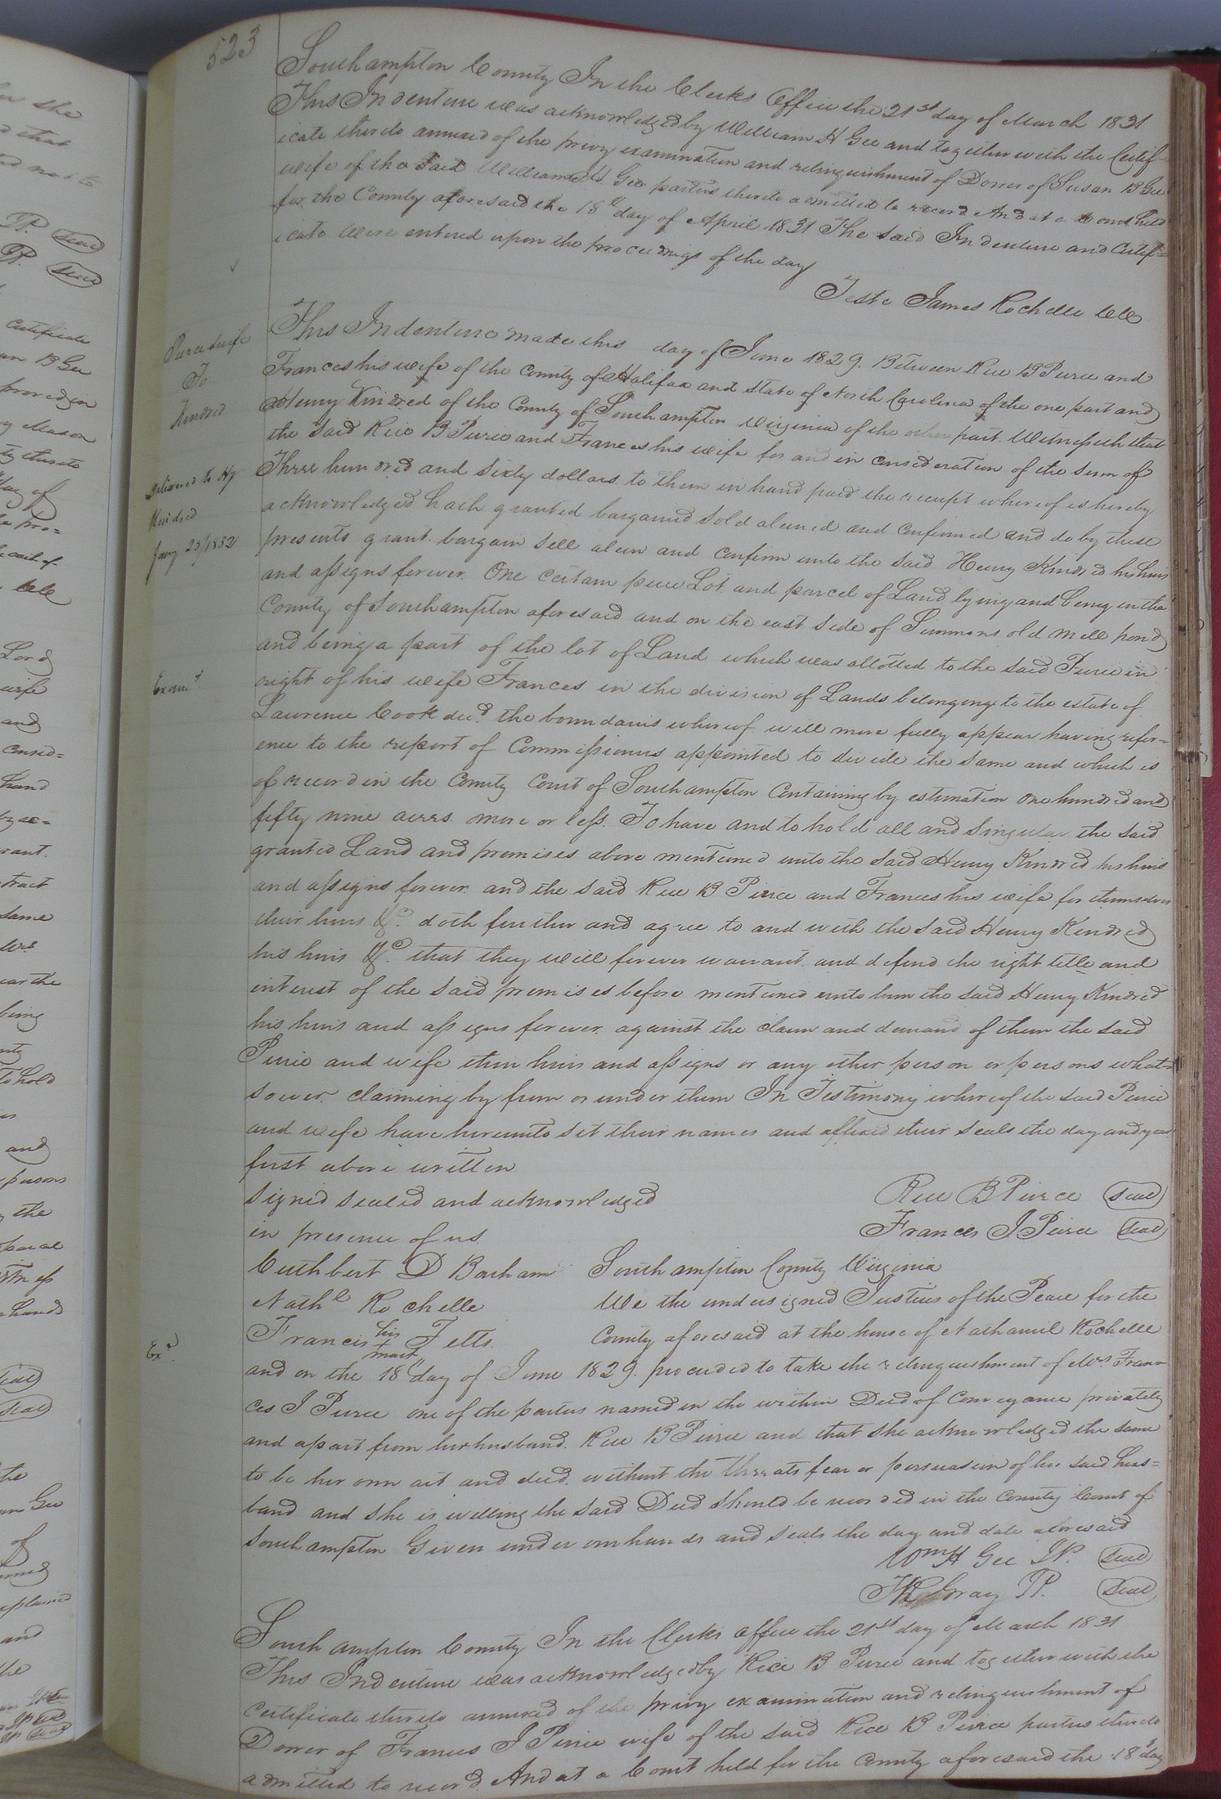 523
Southampton County In the Clerks Office the 21st day of March 1831
This Indenture was acknowledged by William H Gee and together with the Certif-
icate thereto annexed of the privy examination and relinquishment of Dower of Susan B Gee
wife of the said William H Gee parties thereto admitted to record And at a Court held
for the County aforesaid the 18th day of April 1831 The said Indenture and Certif-
icate were entered upon the proceedings of the day
Teste James Rochelle Clk
Pierce & wife
To
Kindred
Delivered to Hy
Kindred
Jany 23/1832
Examd
Exd
This Indenture made this day of June 1829. Between Rice B Pierce and
Frances his wife of the County of Halifax and State of North Carolina of the one part and
Henry Kindred of the County of Southampton Virginia of the other part. Witnesseth that
the said Rice B Pierce and Frances his wife for and in consideration of the sum of
Three hundred and sixty dollars to them in hand paid the receipt whereof is hereby
acknowledged hath granted bargained sold aliened and confirmed and do by these
presents grant bargain sell alien and confirm unto the said Henry Kindred his heirs
and assigns forever. One certain piece Lot and parcel of Land lying and being in the
County of Southampton aforesaid and on the east side of Simmons old mill pond
and being a part of the lot of Land which was allotted to the said Pierce in
right of his wife Frances in the division of Lands belonging to the estate of
Lawrence Cook decd the boundaries whereof will more fully appear having refer-
ence to the report of Commissioners appointed to divide the same and which is
of record in the County Court of Southampton Containing by estimation one hundred and
fifty nine acres more or less. To have and to hold all and Singular the said
granted Land and premises above mentioned unto the said Henry Kindred his heirs
and assigns forever and the said Rice B Pierce and Frances his wife for themselves
their heirs &c. doth further and agree to and with the said Henry Kindred
his heirs &c. that they will forever warrant and defend the right title and
interest of the said premises before mentioned unto him the said Henry Kindred
his heirs and assigns forever against the claim and demand of them the said
Pierce and wife their heirs and assigns or any other person or persons what-
soever claiming by from or under them In Testimony whereof the said Pierce
and wife have hereunto set their names and affixed their seals the day and year
first above written
Signed sealed and acknowledged Rice B Pierce (Seal)
in presence of us Frances J Pierce (Seal)
Cuthbert D Barham Southampton County Virginia
Nathl Rochelle We the undersigned Justices of the Peace for the
Francis his mark Felts. County aforesaid at the house of Nathaniel Rochelle
and on the 18th day of June 1829. proceeded to take the relinquishment of Mrs Fran-
ces J Pierce one of the parties named in the within Deed of Conveyance privately
and apart from her husband. Rice B Pierce and that she acknowledged the same
to be her own act and deed without the threats fear or persuasion of her said hus-
band and she is willing the said Deed should be recorded in the County Court of
Southampton Given under our hands and seals the day and date aforesaid
Wm H Gee JP. (Seal)
Gray JP. (Seal)
Southampton County In the Clerks office the 21st day of March 1831
This Indenture was acknowledged by Rice B Pierce and together with the
Certificate thereto annexed of the privy examination and relinquishment of
Dower of Frances J Pierce wife of the said Rice B Pierce parties thereto
admitted to record. And at a Court held for the County aforesaid the 18th day